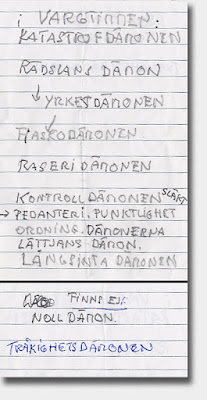 i VARGTIMMEN:
KATASTROFDÄMONEN
RÄDSLANS DÄMON
↓ YRKESDÄMONEN
FIASKODÄMONEN
RASERIDÄMONEN
KONTROLLDÄMONEN SLÄKT
→ PEDANTERI. PUNKTLIGHET
ORDNING. DÄMONERNA
LÄTTJANS DÄMON.
LÅNGSINTA DÄMONEN
FINNS EJ
NOLL DÄMON.
TRÅKIGHETSDÄMONEN